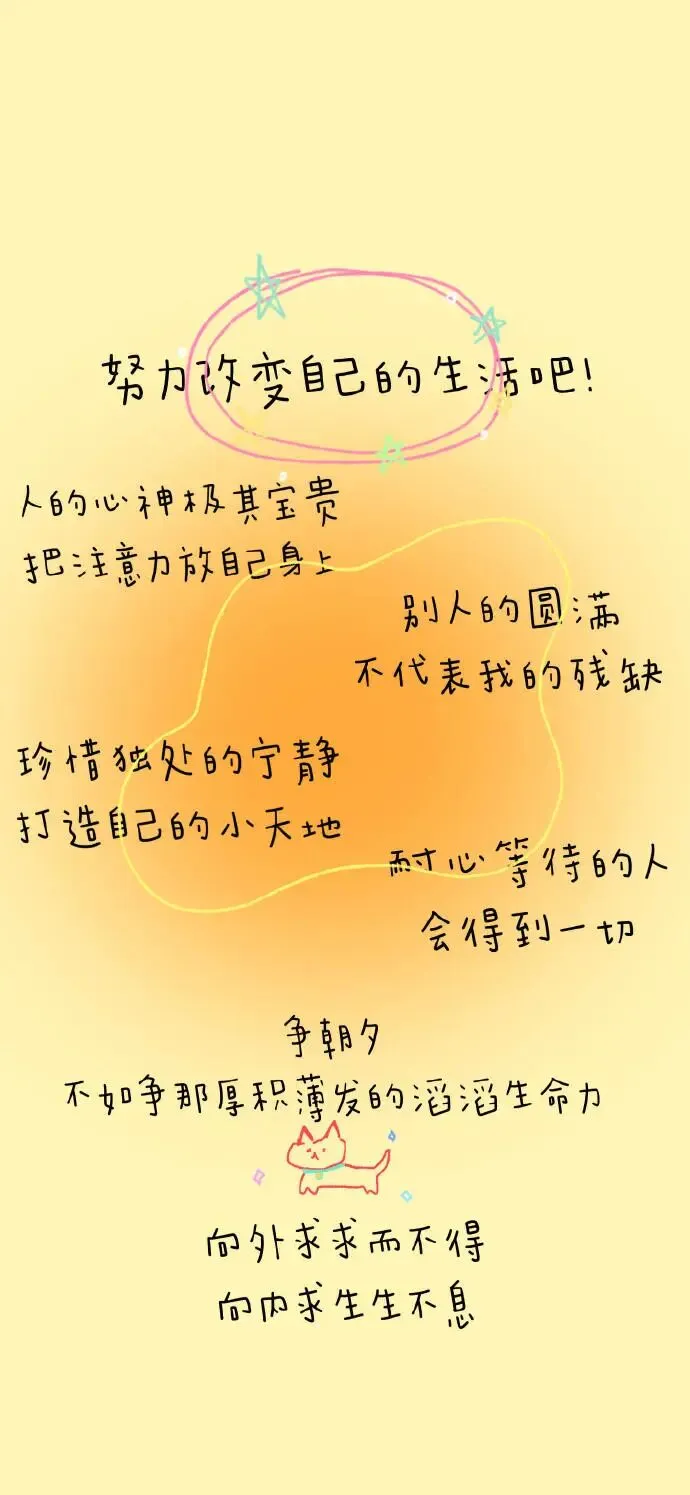 努力改变自己的生活吧!
人的心神极其宝贵
把注意力放自己身上
别人的圆满
不代表我的残缺
珍惜独处的宁静
打造自己的小天地
耐心等待的人
会得到一切
争朝夕
不如争那厚积薄发的滔滔生命力
向外求求而不得
向内求生生不息